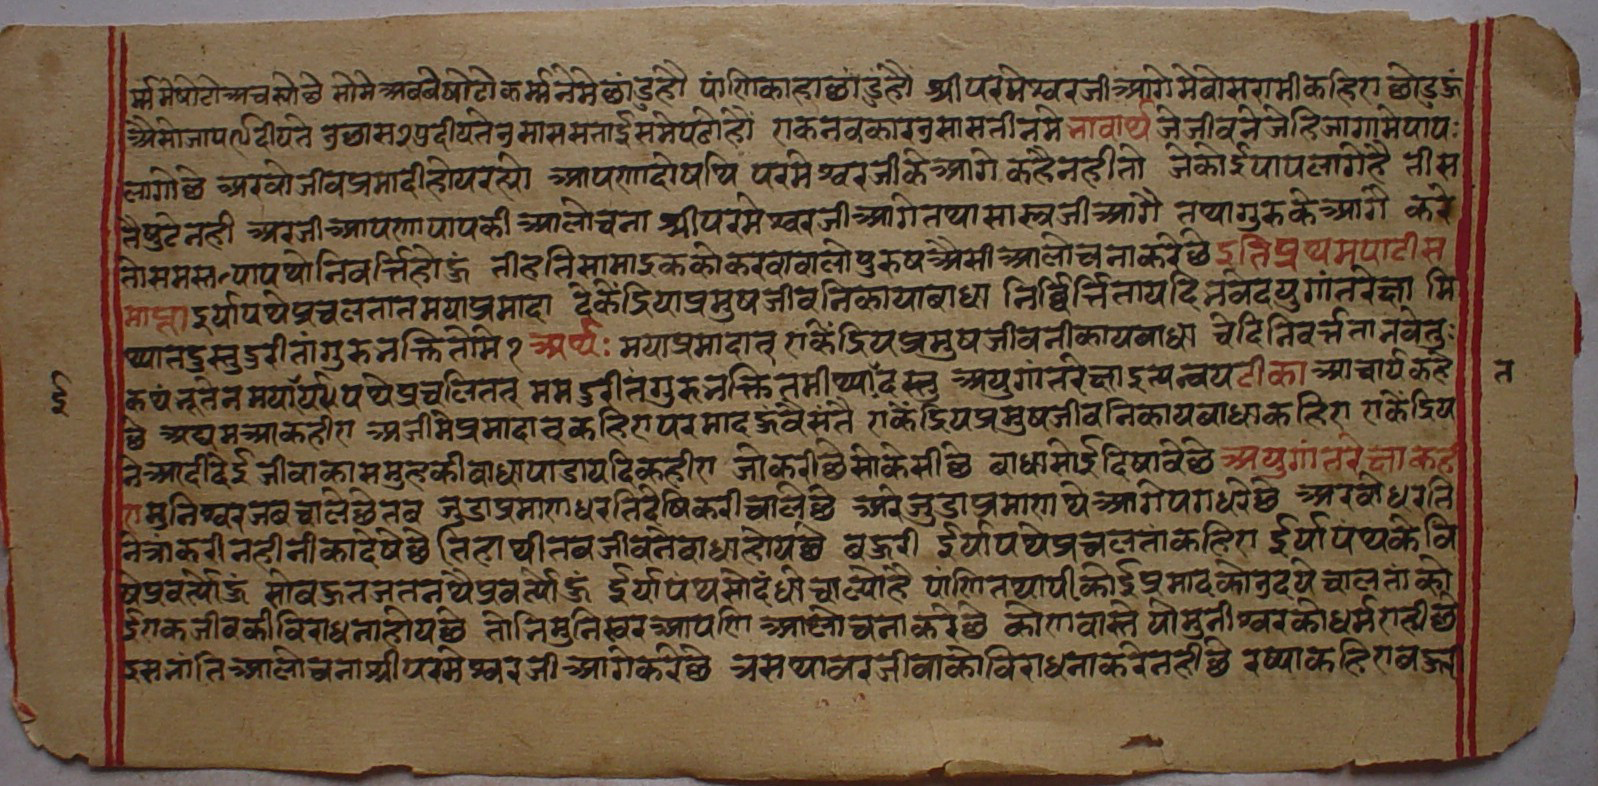 र्म्म मे षोटो अचस्यो छे सो मे अब वे षोटो कर्म्म नै मे छांडु हौ पांणि का हा छांडुं हौं श्री परमेश्वर जी आगे मे वोसरामी कहिए छोडु ऊं
अैसो जाप दीयते नुछास २७ दीयते नुसास सताईस मे पटो हौ एक नवकार नुसास तीन मे भावार्थ जे जीव ने जेहि जागा मे पाप:
लागो छे अर वो जीव प्रमादी होय रह्यो आपणा दोष पि परमेश्वर जी के आगे कहै नही तो जे कोई पाप लागे है तीस
तै षुटे नही अर जी आपणा पाप की आलोचना श्री परमेश्वर जी आगे तथा सास्त्र जी आगै तथा गुरु के आगै करे
तो समस्त पाप थो निवर्त्ति हो ऊं तीह ति सामाइक को करवावालो पुरुष अैसी आलोचना करे छे इति प्रथम पाटी स
माप्ता इर्यापथे प्रचलतात मया प्रमादा देकेंद्रिया प्रमुष जीव निकाया बाधा निर्व्विर्त्तिता यदि भवेदयुगांतरेक्षा मि
थ्या तदुस्तु दुरीतां गुरु भक्तितो मे १ अर्थ: मया प्रमादात् एकेंद्रिय प्रमुष जीवनीकाय बाधा चेदि निवर्त्तता भवेतु:
कथं भूतेन मया र्यापथे प्रचलितत् मम दुरीतं गुरु भक्ति तमीथ्या दस्तु अयुगांतरेक्षा इत्यन्वय टीका आचार्य कहे
छे अद्यम आ कहीए अजी मे प्रमादात् कहिए परमाद ऊवै संतै एकेंद्रिय प्रमुष जीव निकाय बाधा कहिए एकेंद्रिय
ने आदी देई जीवा का समुह की बाधा पाडा यदि कहीए जो करी छे सो केसी छे बाधा सोई दिषावे छे अयुगांतरेक्षा कही
ए मुनिश्वर जब चाले छे तब जुडा प्रमाण धरति देषि करी चाले छे अर जुडा प्रमाण थे आगे पग धरे छे अर वो धरति
नेत्रां करी नही नीका देषे छे तिहा थी तब जीव ते बाधा होय छे बऊरी ईर्यापथे प्रचलतां कहिए ईर्यापथ के वि
षे प्रवर्त्यो ऊं सो बऊत जतन थे प्रवर्त्यो ऊं ईर्यापथ सोदंधो चाल्यो है पांणि तथापी कोई प्रमाद को नुदये चालतां को
ई एक जीव की विराधना होय छे तो नि मुनिस्वर आपणि आलोचना करे छे कोण वास्ते यो मुनीश्वर को धर्म एही छे
इस भांति आलोचना श्री परमेश्वर जी आगे करे छे त्रस थावर जीवा को विराधना करे नही छे रष्या कहिए बऊत
ई
त